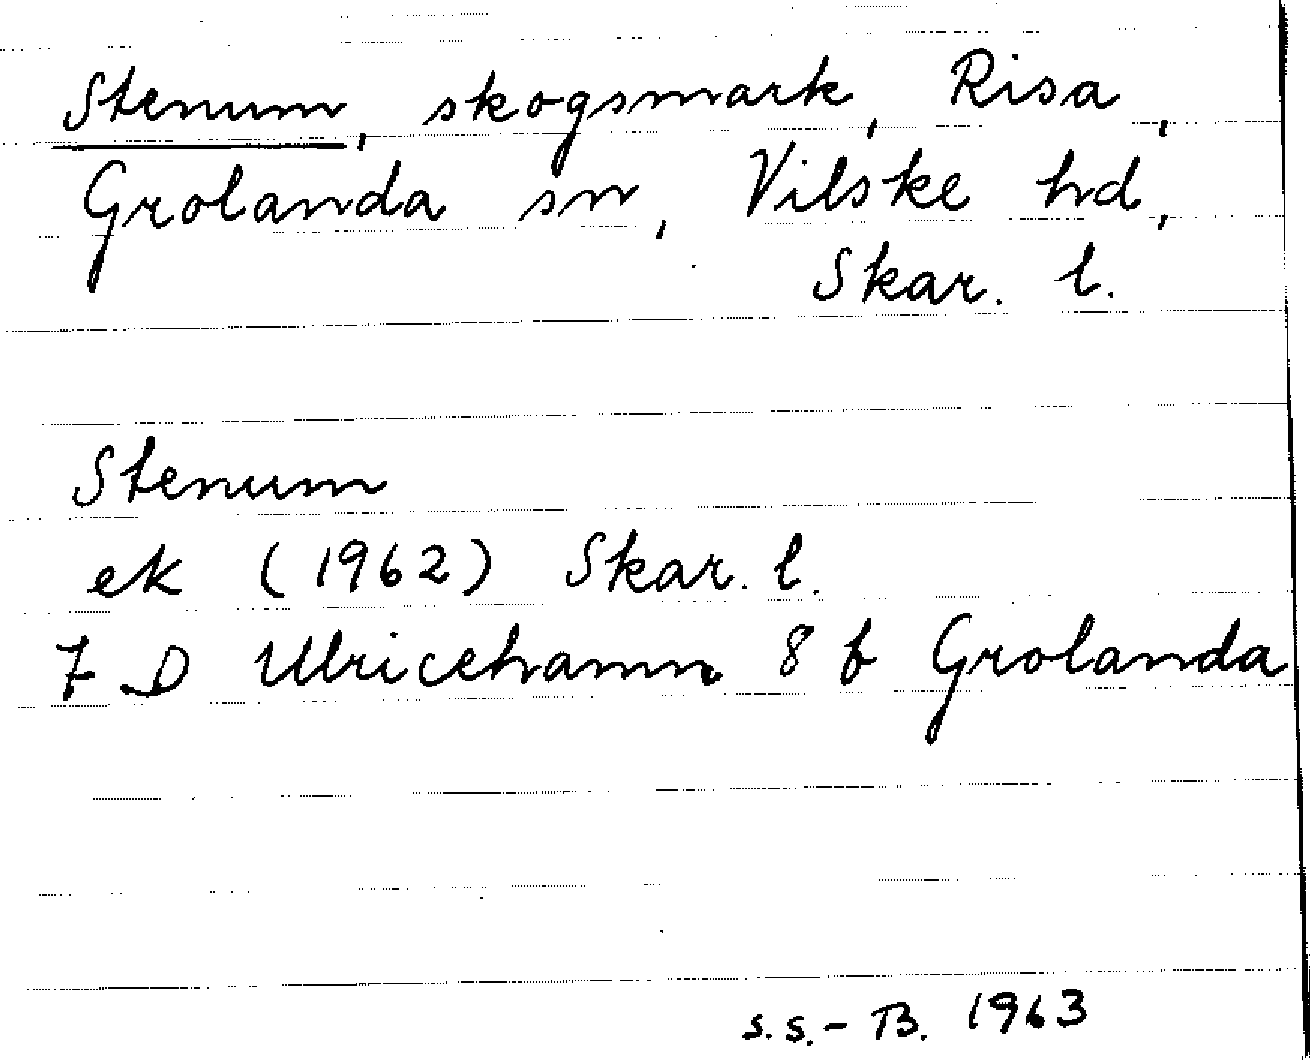 Stenum, skogsmark, Risa,
Grolanda sn, Vilske hd,
Skar. l.
Stenum
ek (1962) Skar. l.
7 D Ulricehamn 8 b Grolanda
s.s.-B. 1963